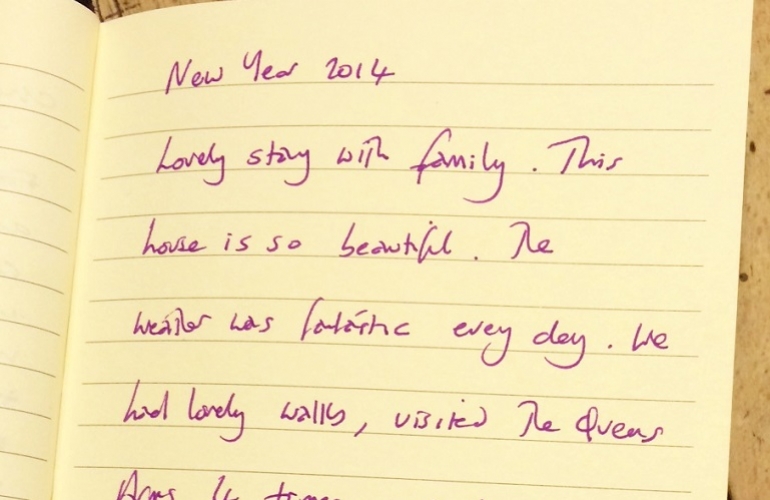 New Year 2014
Lovely stay with family. This
house is so beautiful. The
weather was fantastic every day. We
had lovely walks, visited The Queens
Arms